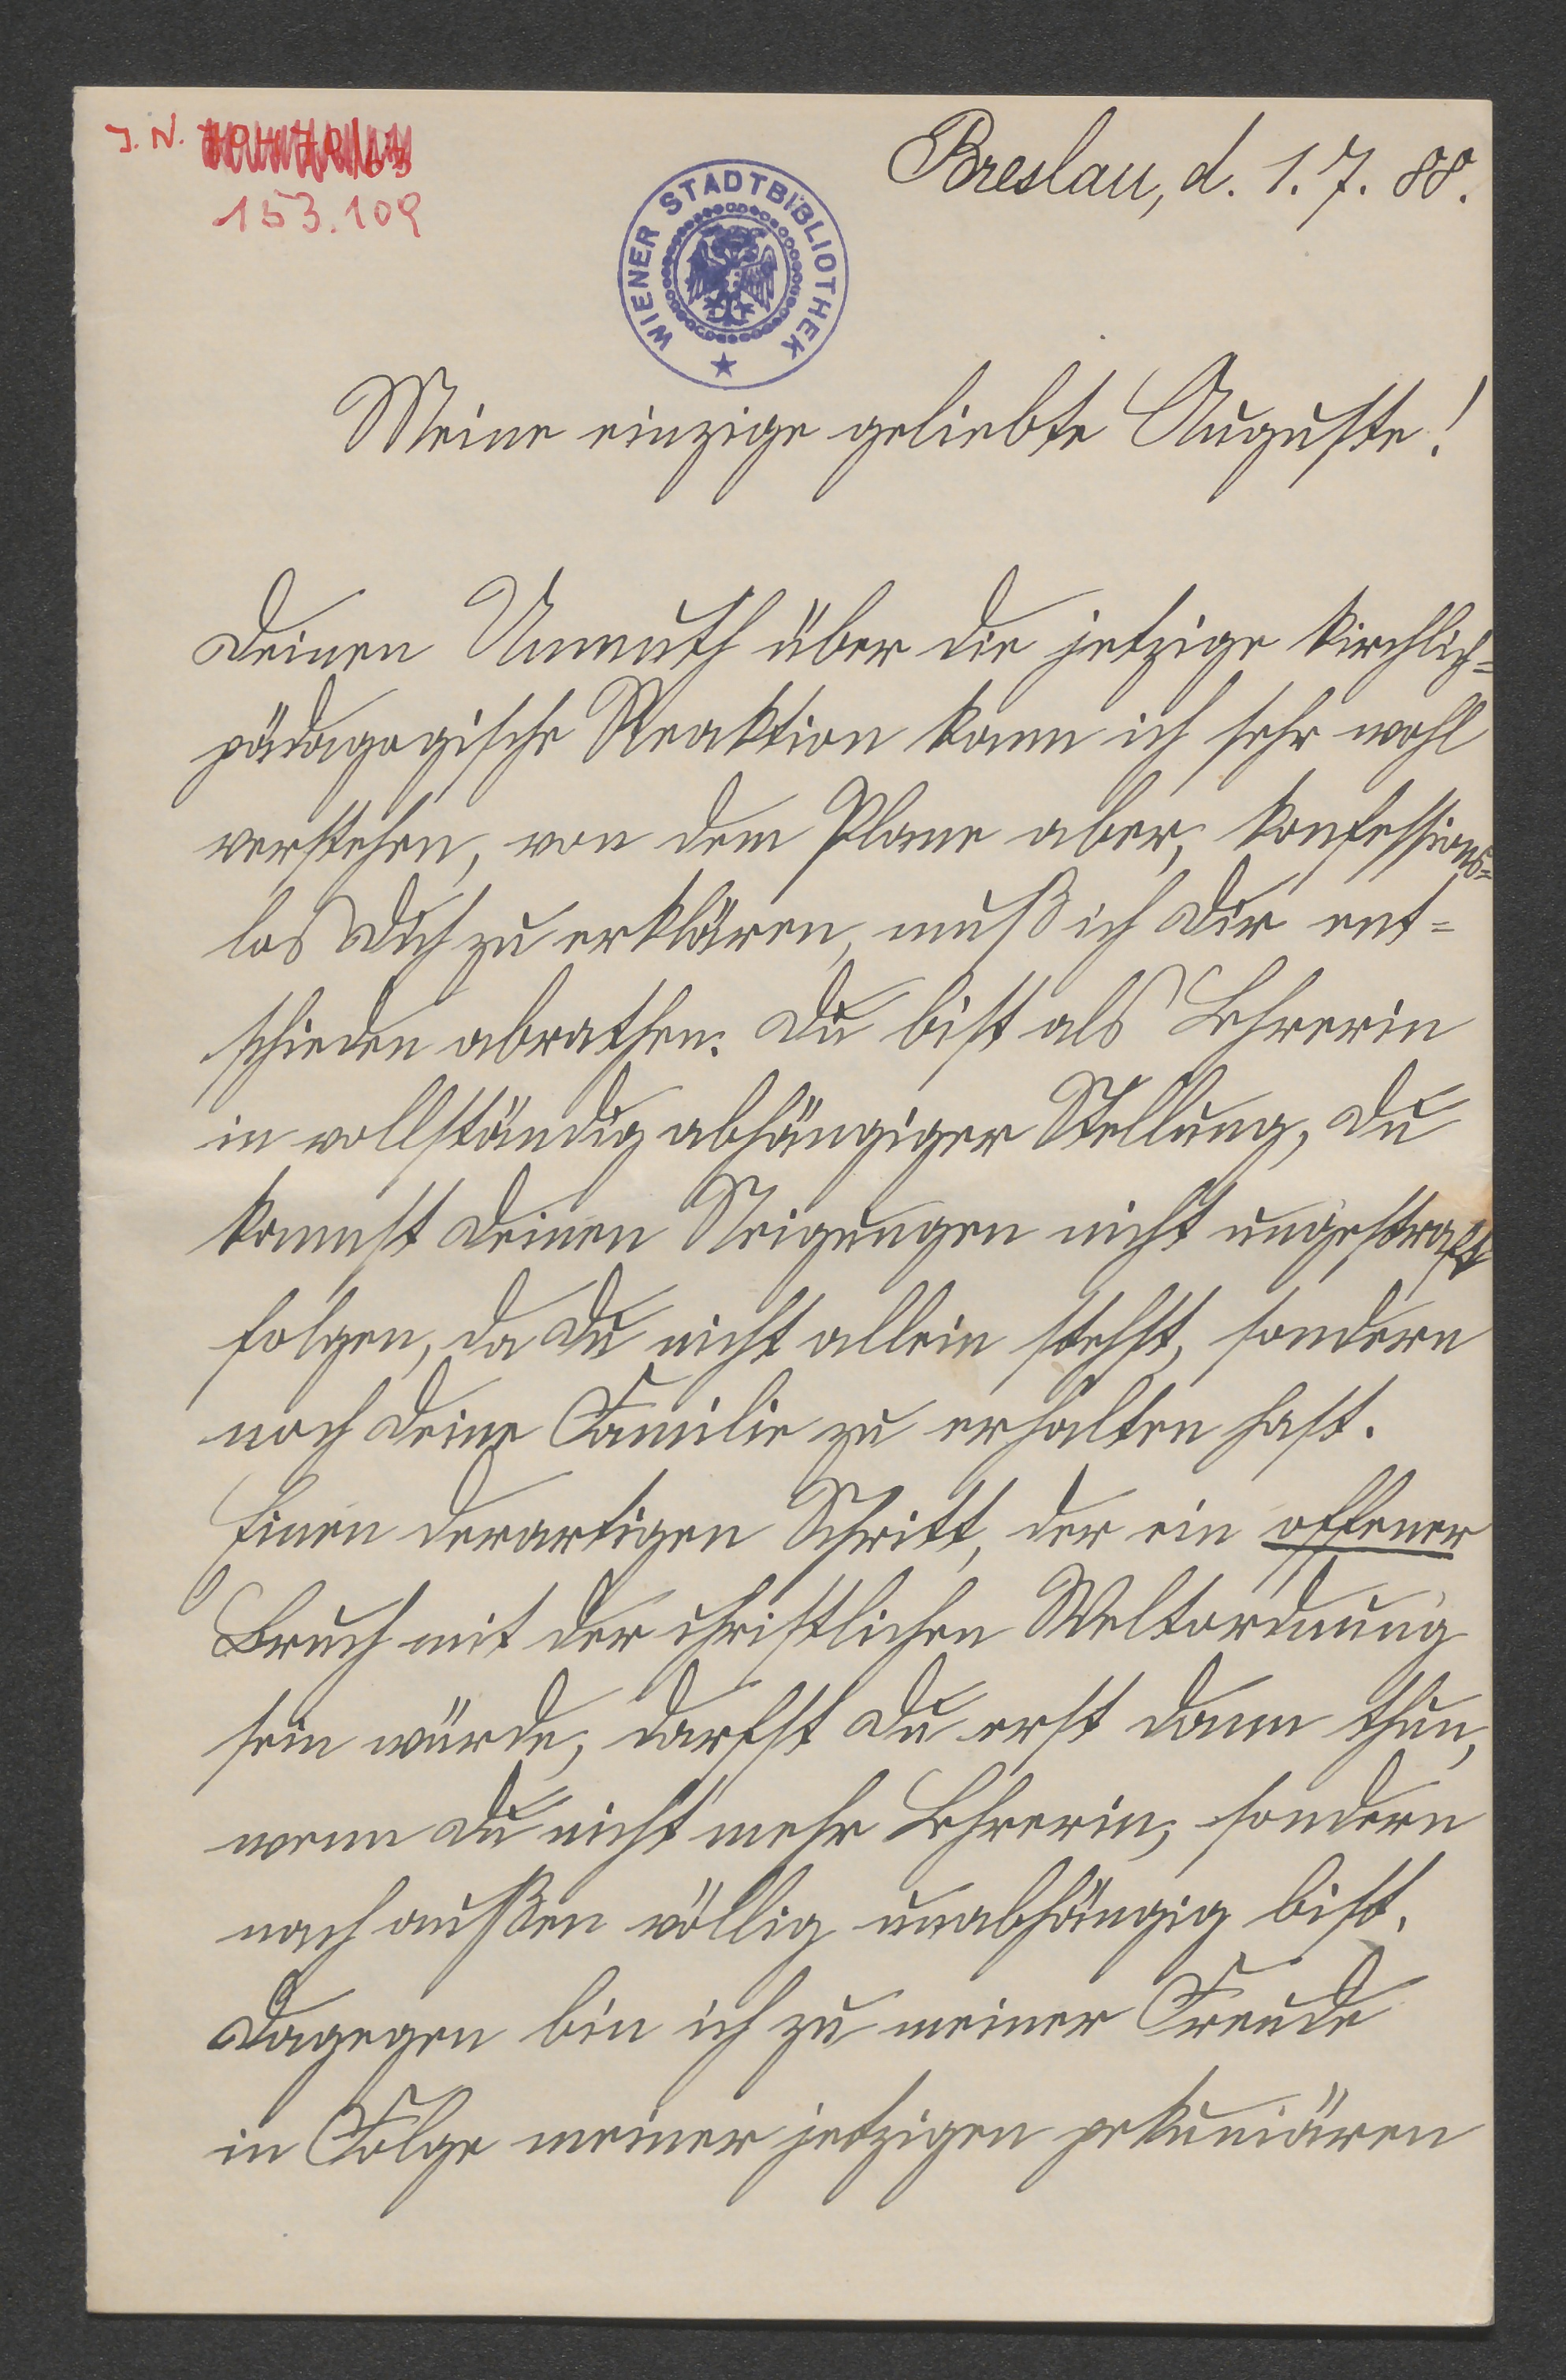 J. N.
153.109
WIENER STADTBIBLIOTHEK
Breslau, d. 1. 7. 88.
Meine einzige geliebte Auguste!
Deinen Unmuth über die jetzige kirchlich=
pädagogische Reaktion kann ich sehr wohl
verstehen, von dem Plane aber, konfessions=
los Dich zu erklären, muß ich Dir ent=
schieden abrathen. Du bist als Lehrerin
in vollständig abhängiger Stellung, Du
kannst Deinen Neigungen nicht ungestraft
folgen, da Du nicht allein stehst, sondern
noch Deine Familie zu erhalten hast.
Einen derartigen Schritt, der ein offener
Bruch mit der christlichen Weltordnung
sein würde, darfst Du erst dann thun,
wenn Du nicht mehr Lehrerin, sondern
nach außen völlig unabhängig bist.
Dagegen bin ich zu meiner Freude
in Folge meiner jetzigen pekuniären